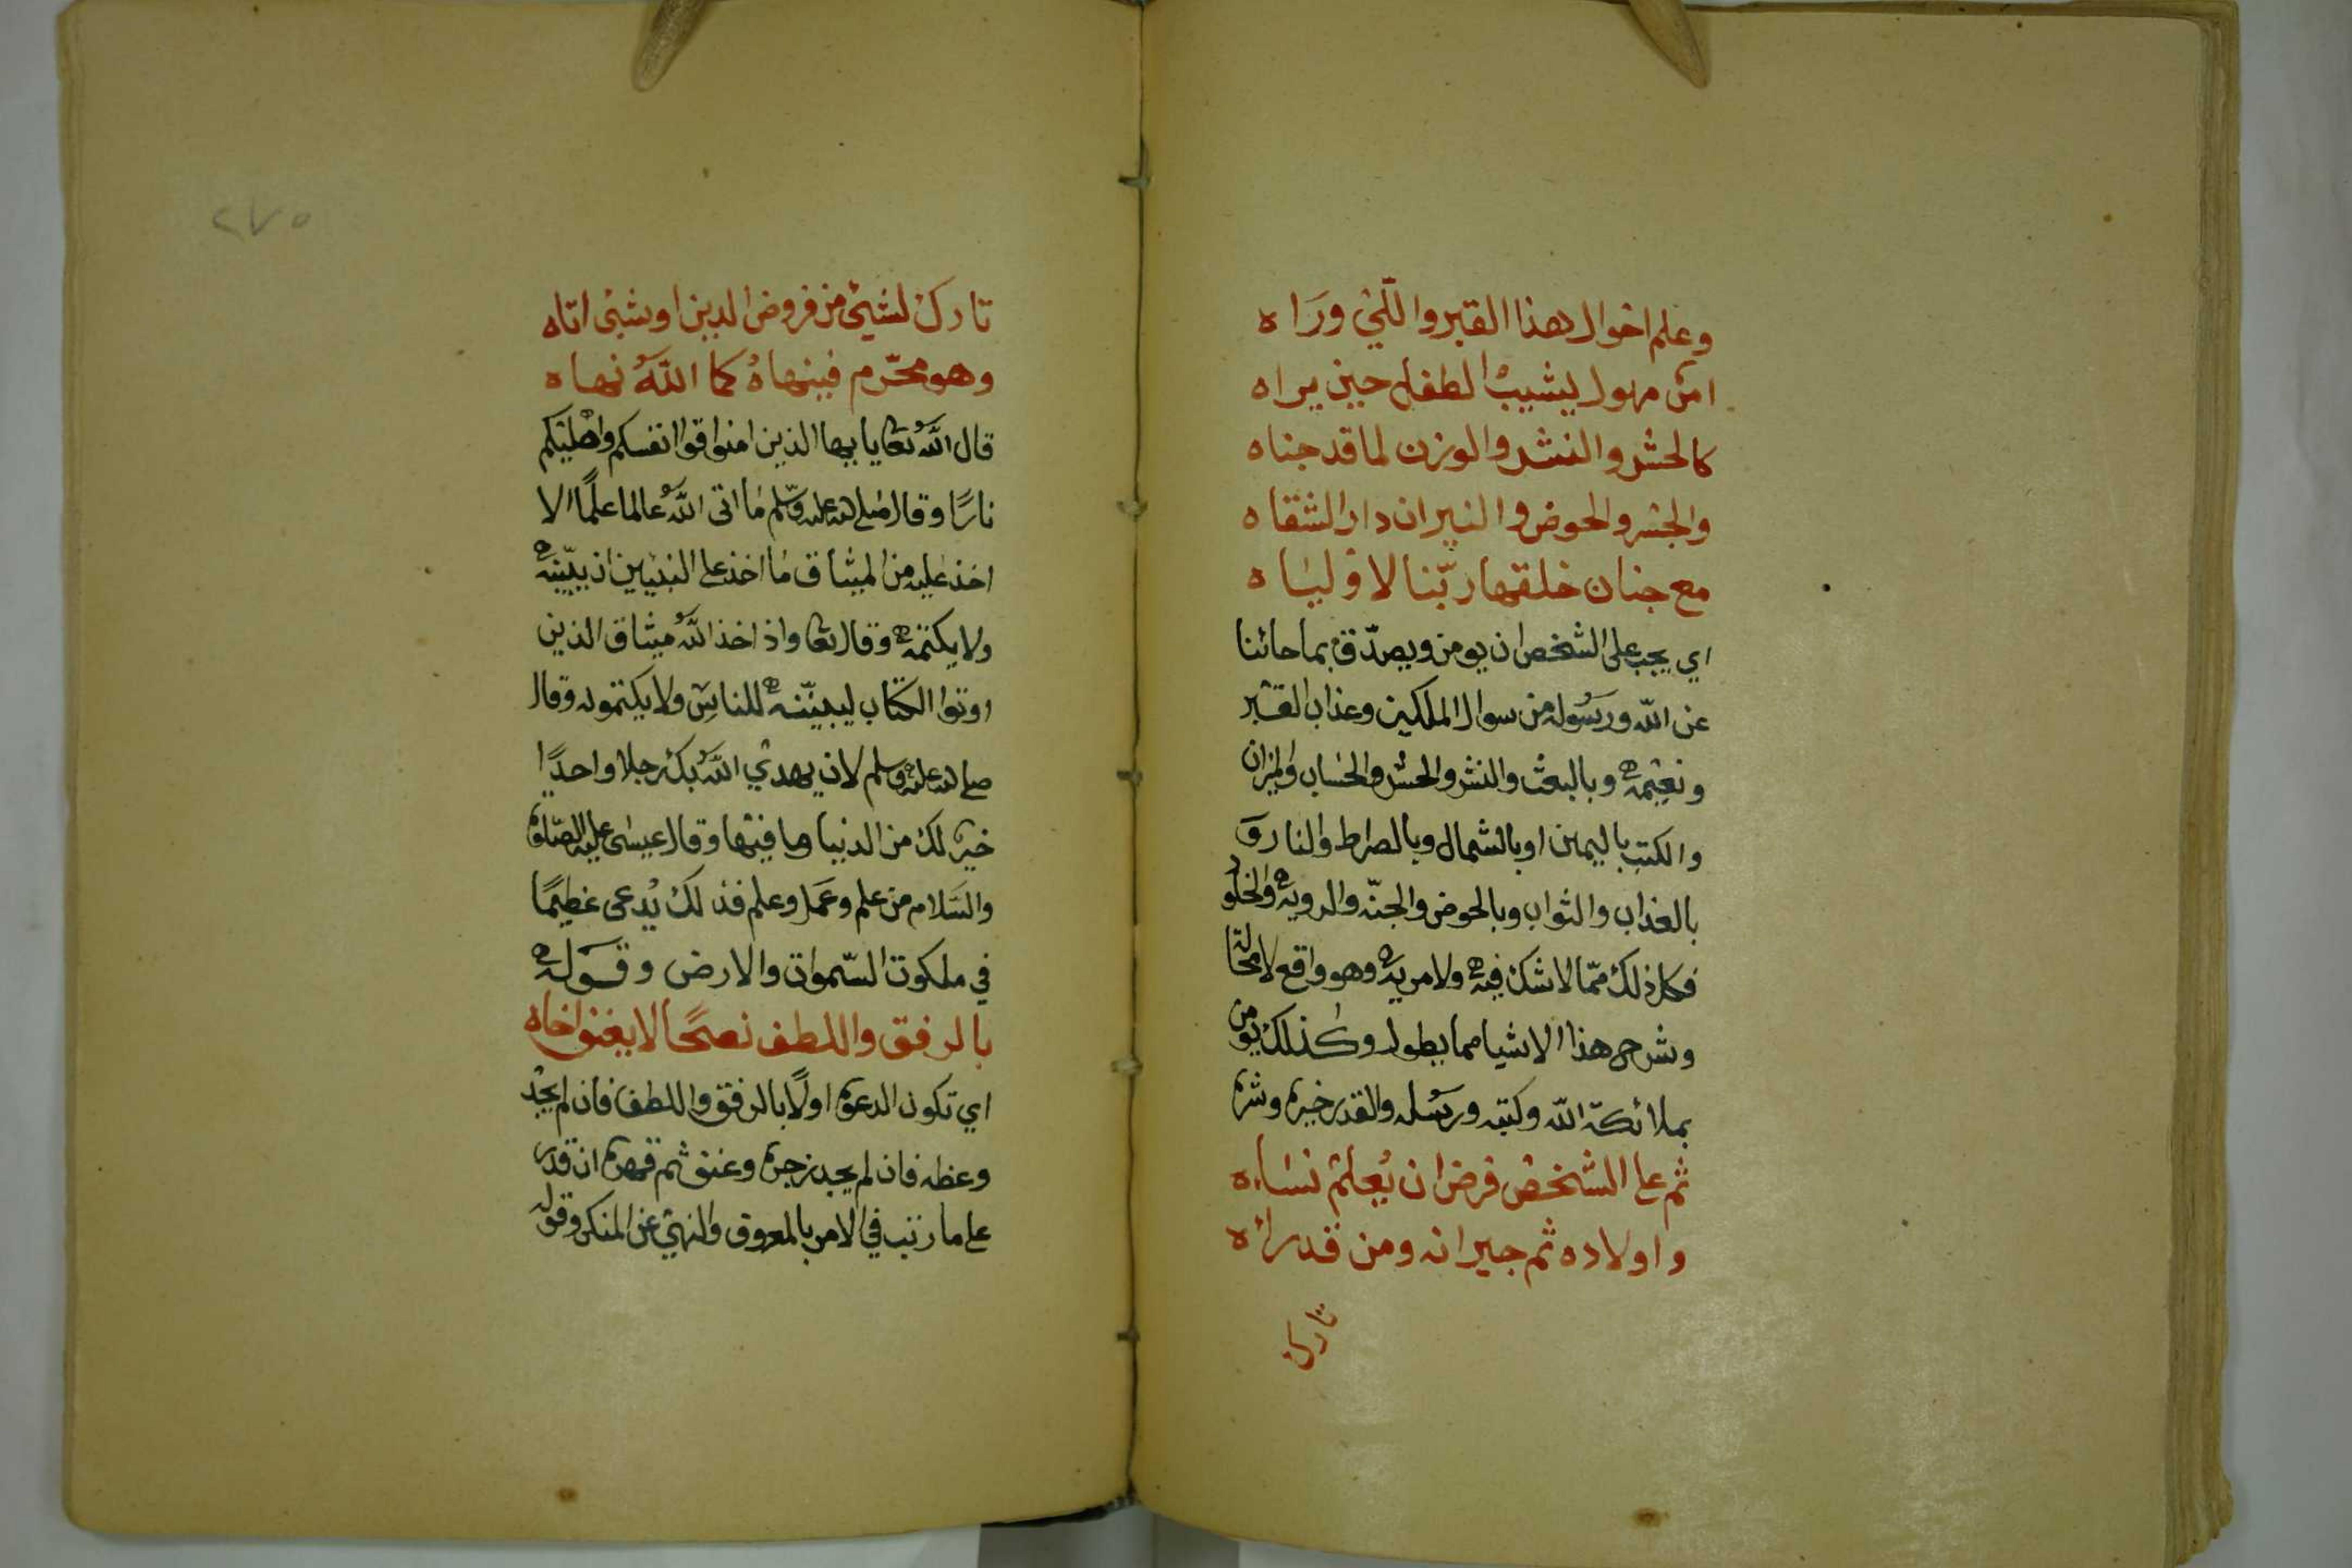 وعلم احوال هذا القبر والتي وراه
امر مهول يشيب الطفل حين يراه
كالحشر والنشر والوزن لما قد جناه
والجسر والحوض والنيران دار الشقاه
مع جنان خلقها ربّنا لاوليَاه
اي يجب على الشخص ان يومن ويصدّق بما جائنا
عن الله ورسُوله من سوال الملكين وعذاب القبر
ونعيمه وبالبعث والنشر والحشر والحساب والميزان
والكتب باليمين او بالشمال وبالصراط والنار و
بالعذاب والثواب وبالحوض والجنّه والرويه والخلود
فكل ذلك ممّا لا شك فيه ولا مريه وهو واقع لا محالة
وشرح هذا الاشيا مما يطول وكذلك يومن
بملائكة الله وكتبه ورسُله والقدر خيره وشره
ثم على الشخص فرض ان يُعلم نسَاءه
واولاده ثم جيرانه ومن قد رائه
تارك
٢٧٥
تارك لشيئ من فروض الدين او شيئ اتاه
وهو محّرم فينهاهُ كما اللهُ نهاه
قال اللهُ تعا يا ايها الذين امنوا قوا انفسكم واهليكم
نارًا وقال صلى الله عليه وسّلم مَا اتى اللهُ عالما علمًا الا
اخذ عليه من الميثاق مَا اخذ على النبيين ان يبيّنه
ولا يكتمه وقال تعا واذ اخذ اللهُ ميثاق الذين
اوتوا الكتاب ليبيّننه للناسِ ولا يكتمونه وقال
صلى الله عليه وسلم لان يهدي اللهُ بك رجلا واحدًا
خير لك من الدنيا وما فيها وقال عيسى عليه الصّلوة
والسَلام من علم وعَمل وعلم فذلك يُدعى عظيمًا
في ملكوت السّموات والارض وقوله
بالرفق واللطف نصحًا لا يعنف اخاه
اي تكون الدعوة اولًا بالرفق واللطف فان لم يجد
وعظه فان لم يجد زجره وعنف ثم قهره ان قدر
على ما رتب في الامر بالمعروف والنهي عن المنكر وقوله